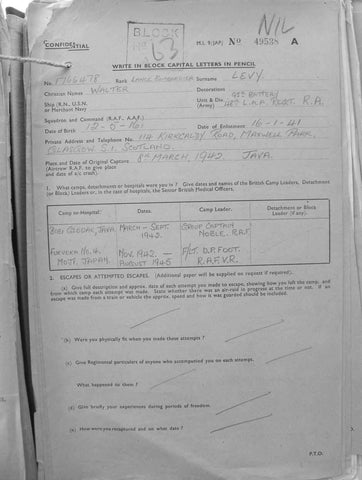 NIL
BLOCK
No 63
CONFIDENTIAL
M.I. 9/JAP/ No 49538 A
WRITE IN BLOCK CAPITAL LETTERS IN PENCIL
No. 1766478 Rank LANCE BOMBARDIER Surname LEVY
Christian Names WALTER Decorations
Ship (R.N., U.S.N. or Merchant Navy Unit & Div. (Army) 95th BATTERY 48th L.A.A. REGT. R.A.
Squadron and Command (R.A.F., A.A.F.)
Date of Birth 12-5-16 Date of Enlistment 16-1-41
Private Address and Telephone No. 114 KIRKCALDY ROAD, MAXWELL PARK,
GLASGOW S.1. SCOTLAND.
Place and Date of Original Capture 8th MARCH, 1942 JAVA.
(Aircrew R.A.F. to give place and date of a/c crash).
1. What camps, detachments or hospitals were you in? Give dates and names of the British Camp Leaders, Detachment
(or Block) Leaders or, in the case of hospitals, the Senior British Medical Officers.
Camp or Hospital. Dates. Camp Leader. Detachment or Block Leader (if any).
BOEI GLODAK, JAVA. MARCH - SEPT. 1942. GROUP CAPTAIN NOBLE. R.A.F
No. 4. MOTI, JAPAN. NOV. 1942. - AUGUST 1945 F/LT. D.P. FOOT. R.A.F.V.R.
2. ESCAPES OR ATTEMPTED ESCAPES. (Additional paper will be supplied on request if required).
(a) Give full description and approx. date of each attempt you made to escape, showing how you left the camp, and
from which camp each attempt was made. State whether there was an air-raid in progress at the time or not. If an
escape was made from a train or vehicle the approx. speed and how it was guarded should be included.
(b) Were you physically fit when you made these attempts?
(c) Give Regimental particulars of anyone who accompanied you on each attempt.
What happened to them?
(d) Give briefly your experiences during periods of freedom.
(e) How were you recaptured and on what date?
P.T.O.